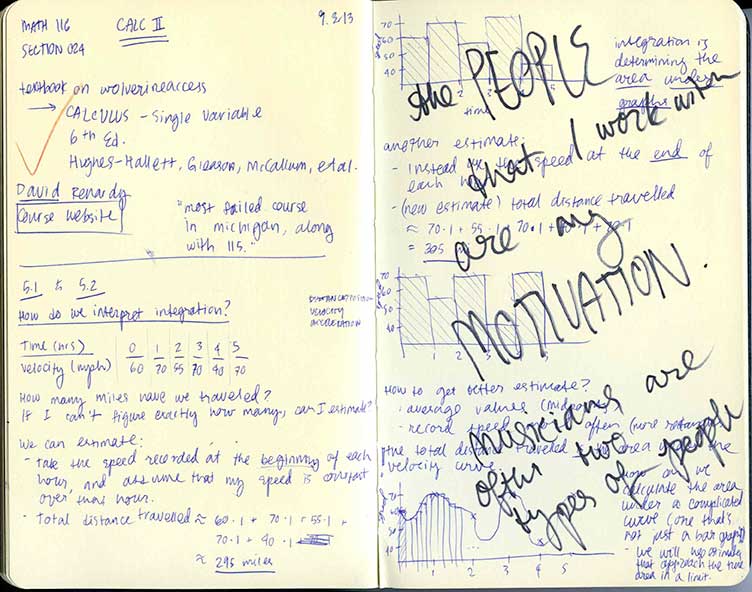 MATH 116 CALC II 9.3.13
SECTION 024
textbook on wolverineaccess
→ CALCULUS - Single Variable
6th Ed.
Hughes-Hallett, Gleason, McCallum, et al.
David Renardy
Course website
"most failed course
in michigan, along
with 115."
5.1 & 5.2
How do we interpret integration?
velocity
acceleration
Time (hrs) 0 1 2 3 4 5
velocity (mph) 60 70 55 70 40 70
How many miles have we traveled?
If I can't figure exactly how many, can I estimate?
We can estimate:
- Take the speed recorded at the beginning of each
hour, and assume that my speed is constant
over that hour.
- Total distance travelled ≈ 60·1 + 70·1 + 55·1 +
70·1 + 40·1
≈ 295 miles
70
60
50
40
2
4
5
time
integration is
determining the
area under
graphs
another estimate:
- Instead the speed at the end of
each
- (new estimate) total distance travelled
≈ 70·1 + 55·1 70·1 +
= 305
70
60
50
40
1 2 3 4 5
How to get better estimate?
- average values
- record speed often
the total distance traveled area the
velocity curve
70
60
50
40
1 2 3 4 5
how do we
calculate the area
under a complicated
curve (one that's
not just a bar graph)
- we will use estimates
that approach the true
area in a limit.
the PEOPLE
that I work with
are my
MOTIVATION.
musicians are
often two
types of people